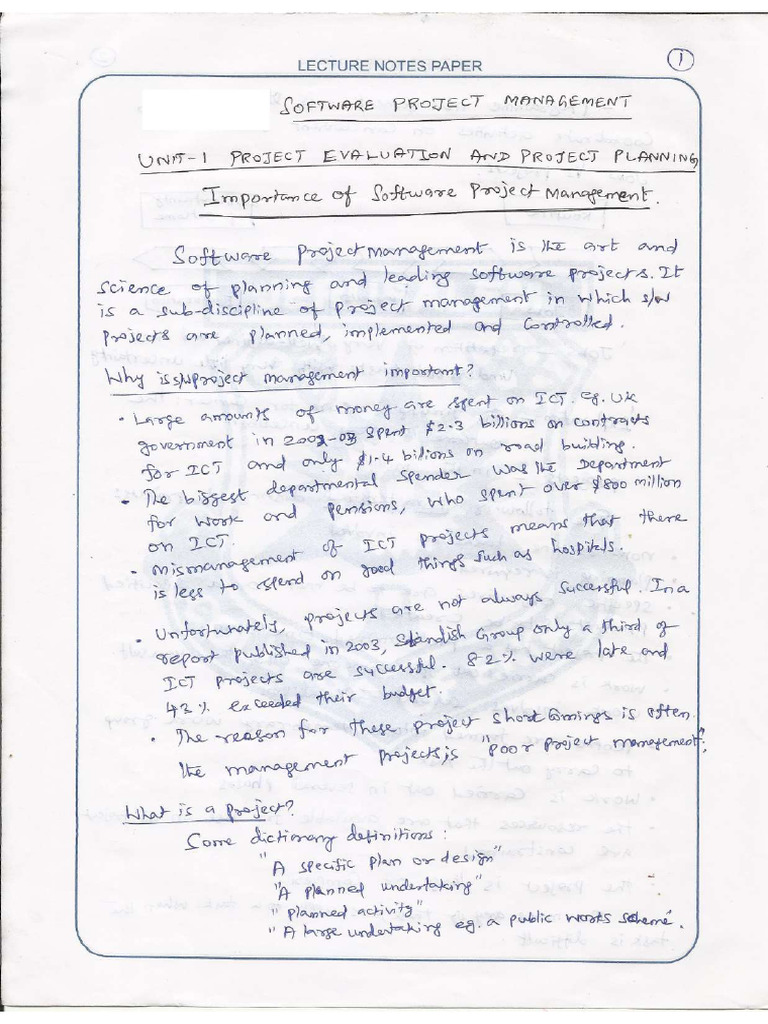 LECTURE NOTES PAPER
1
SOFTWARE PROJECT MANAGEMENT
UNIT-1 PROJECT EVALUATION AND PROJECT PLANNING
Importance of Software Project Management.
Software Project Management is the art and
science of planning and leading software projects. It
is a sub-discipline of project management in which s/w
projects are planned, implemented and controlled.
Why is s/w project management important?
• Large amounts of money are spent on ICT. eg. UK
government in 2002-03 spent $2.3 billions on contracts
for ICT and only $1.4 bilions on road building.
• The biggest departmental spender was the Department
for work and pensions, who spent over $800 million
on ICT.
• Mismanagement of ICT projects means that there
is less to spend on good things such as hospitals.
• Unfortunately, projects are not always successful. In a
report published in 2003, Standish Group only a third of
ICT projects are successful. 82% were late and
43% exceeded their budget.
• The reason for these project shortcomings is often
the management projects is "poor project management";
What is a project?
Some dictionary definitions:
"A specific plan or design"
"A planned undertaking"
"planned activity"
"A large undertaking eg. a public works scheme.